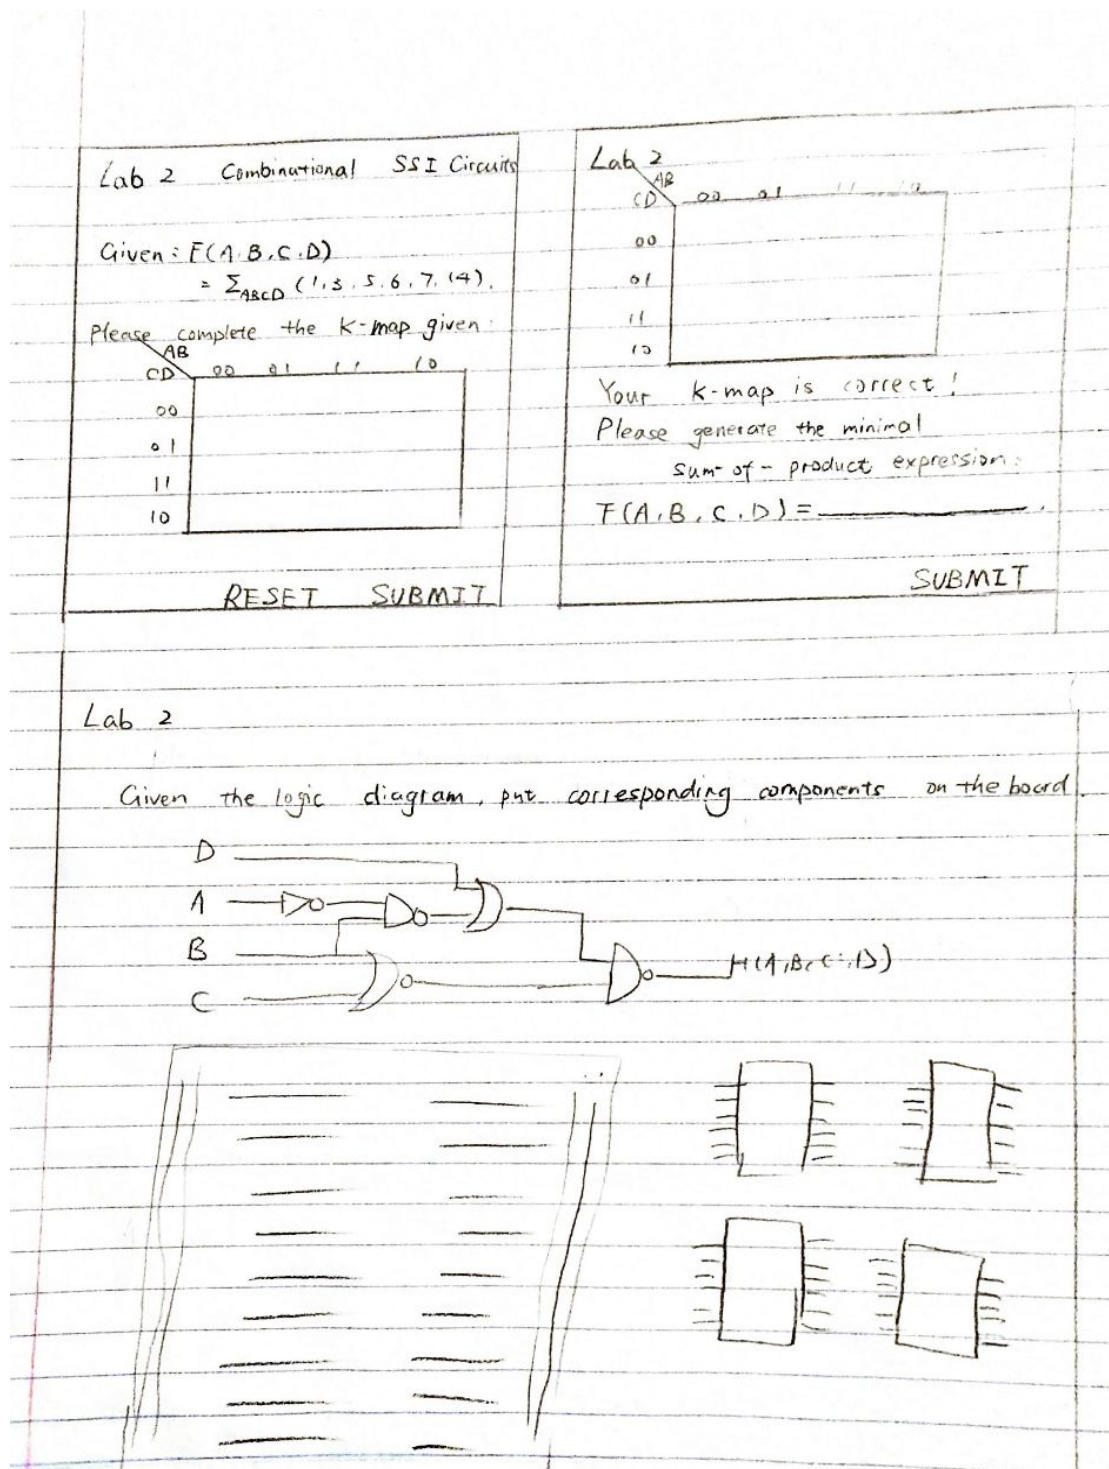 Lab 2 Combinational SSI Circuits
Given: F(A,B,C,D)
= Σ_ABCD (1,3,5,6,7,14).
Please complete the K-map given:
AB
CD 00 01 11 10
00
01
11
10
RESET SUBMIT
Lab 2
AB
CD 00 01 11 10
00
01
11
10
Your K-map is correct!
Please generate the minimal
sum-of-product expression:
F(A,B,C,D)=
SUBMIT
Lab 2
Given the logic diagram, put corresponding components on the board.
D
A
B
C
H(A,B,C,D)